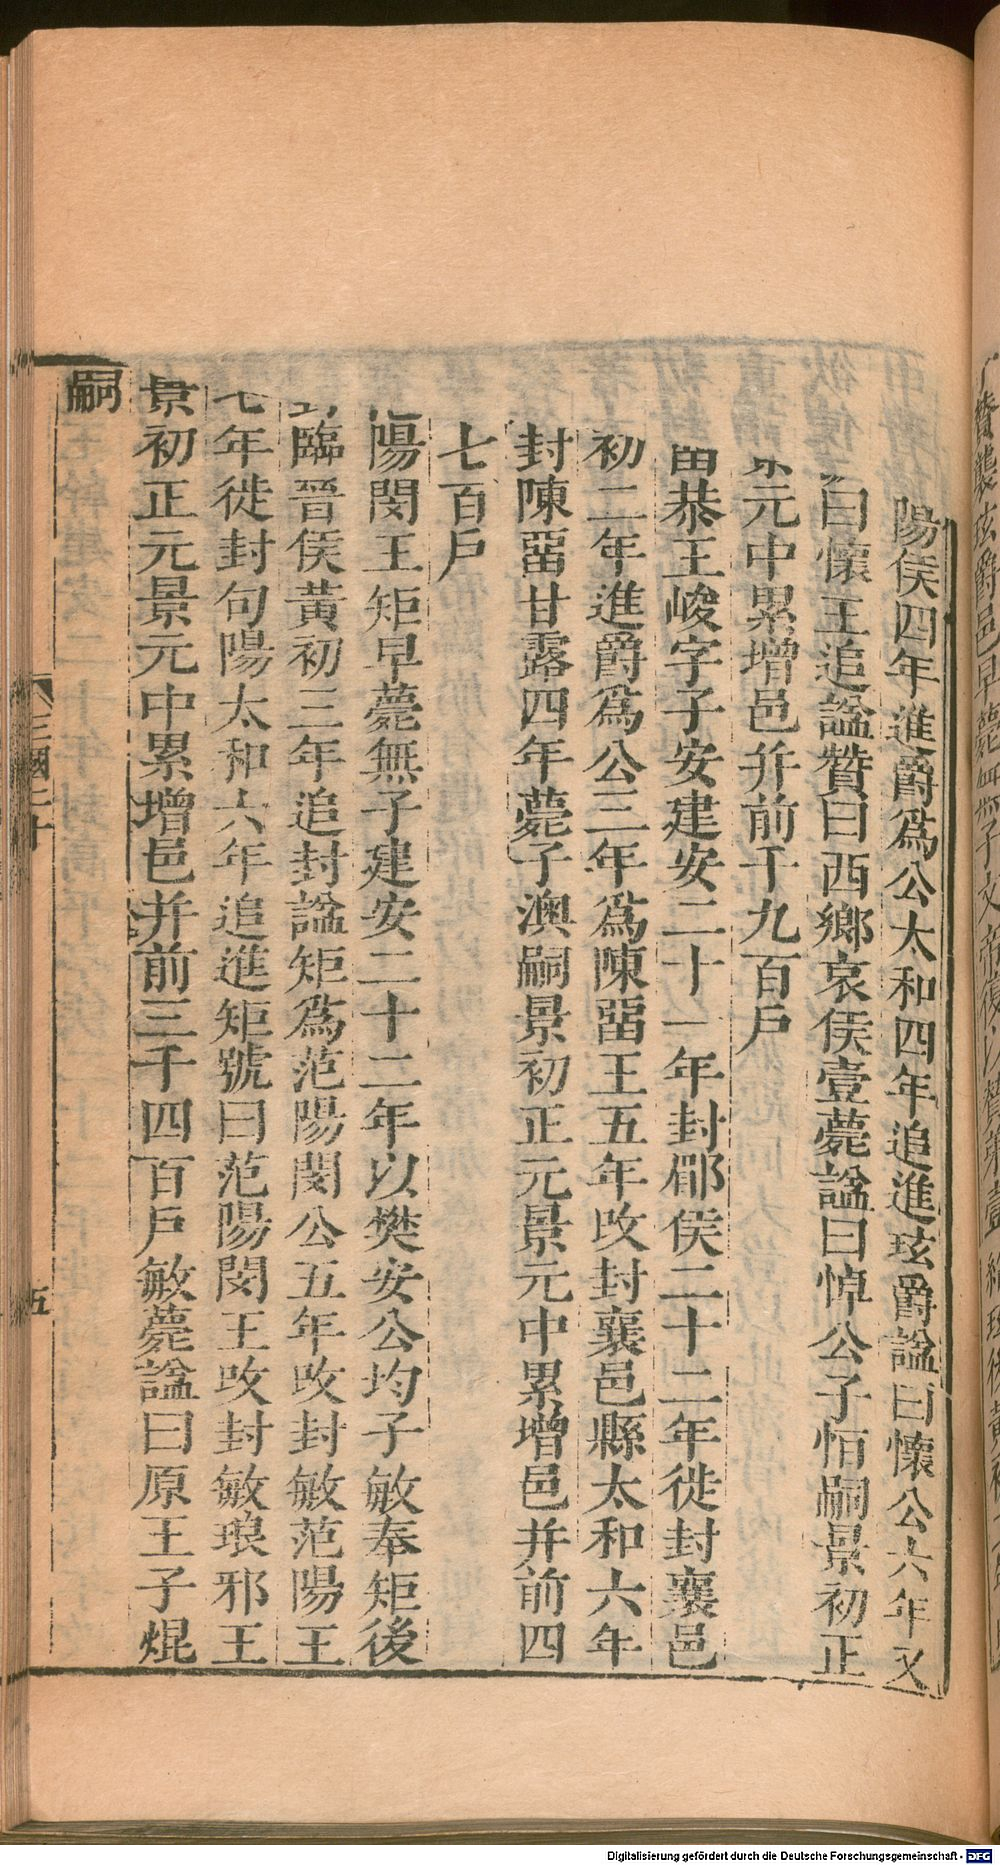 陽侯四年進爵爲公太和四年追進玹爵諡曰懷公六年又
曰懷王追諡贊曰西鄉哀侯壹薨諡曰悼公子恪嗣景初正
元中累增邑并前千九百戶
恭王峻字子安建安二十一年封郿侯二十二年徙封襄邑
初二年進爵爲公三年爲陳留王五年改封襄邑縣太和六年
封陳留甘露四年薨子澳嗣景初正元景元中累增邑并前四
七百戶
陽閔王矩早薨無子建安二十二年以樊安公均子敏奉矩後
臨晉侯黃初三年追封諡矩爲范陽閔公五年改封敏范陽王
七年徙封句陽太和六年追進矩號曰范陽閔王改封敏琅邪王
景初正元景元中累增邑并前三千四百戶敏薨諡曰原王子焜
嗣
三國二十
五
Digitalisierung gefördert durch die Deutsche Forschungsgemeinschaft - DFG